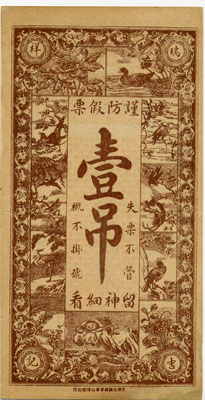 瑞祥
謹防假票
壹吊
失票不管
概不掛號
留神細看
吉記